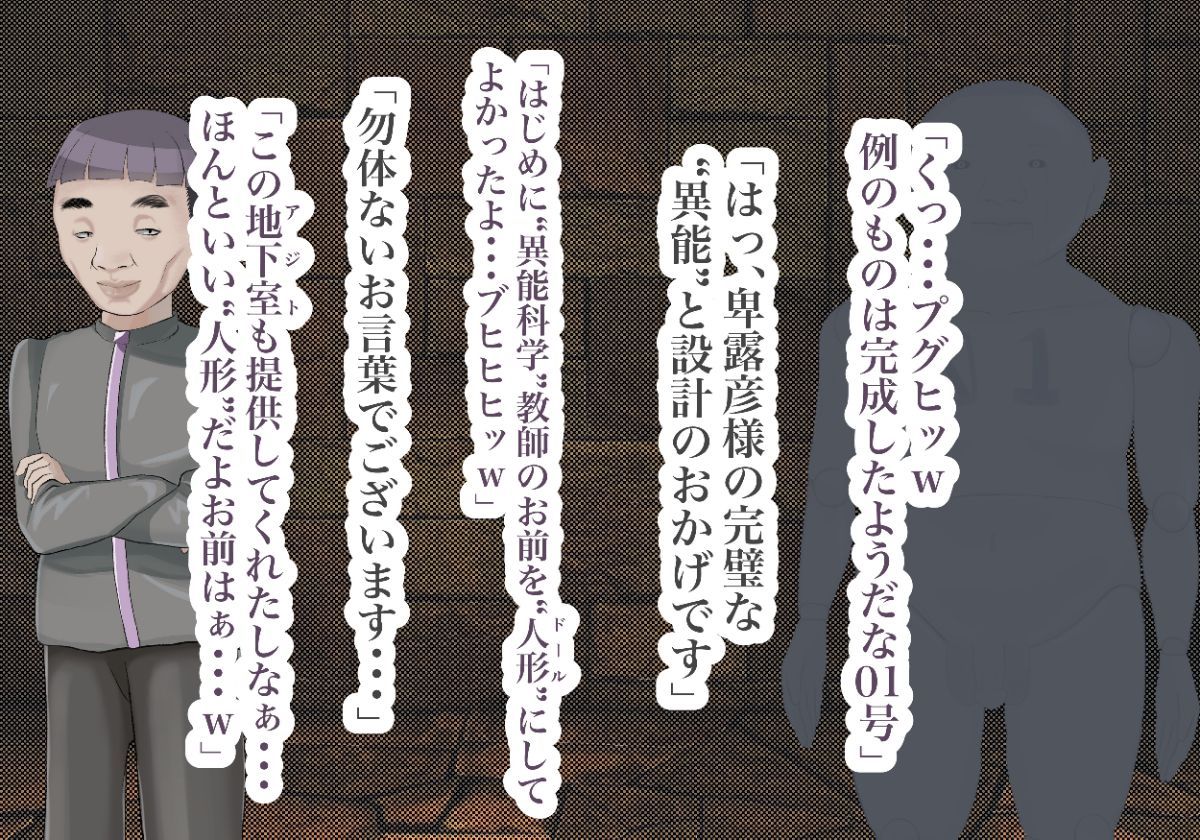 「くっ・・・プグヒッw
例のものは完成したようだな01号」
「はっ、卑露彦様の完璧な
“異能”と設計のおかげです」
「はじめに“異能科学”教師のお前を“人形”にして
ドール
よかったよ・・・ブヒヒヒッw」
「勿体ないお言葉でございます・・・」
「この地下室も提供してくれたしなぁ・・・
アジト
ほんといい“人形”だよお前はぁ・・・w」